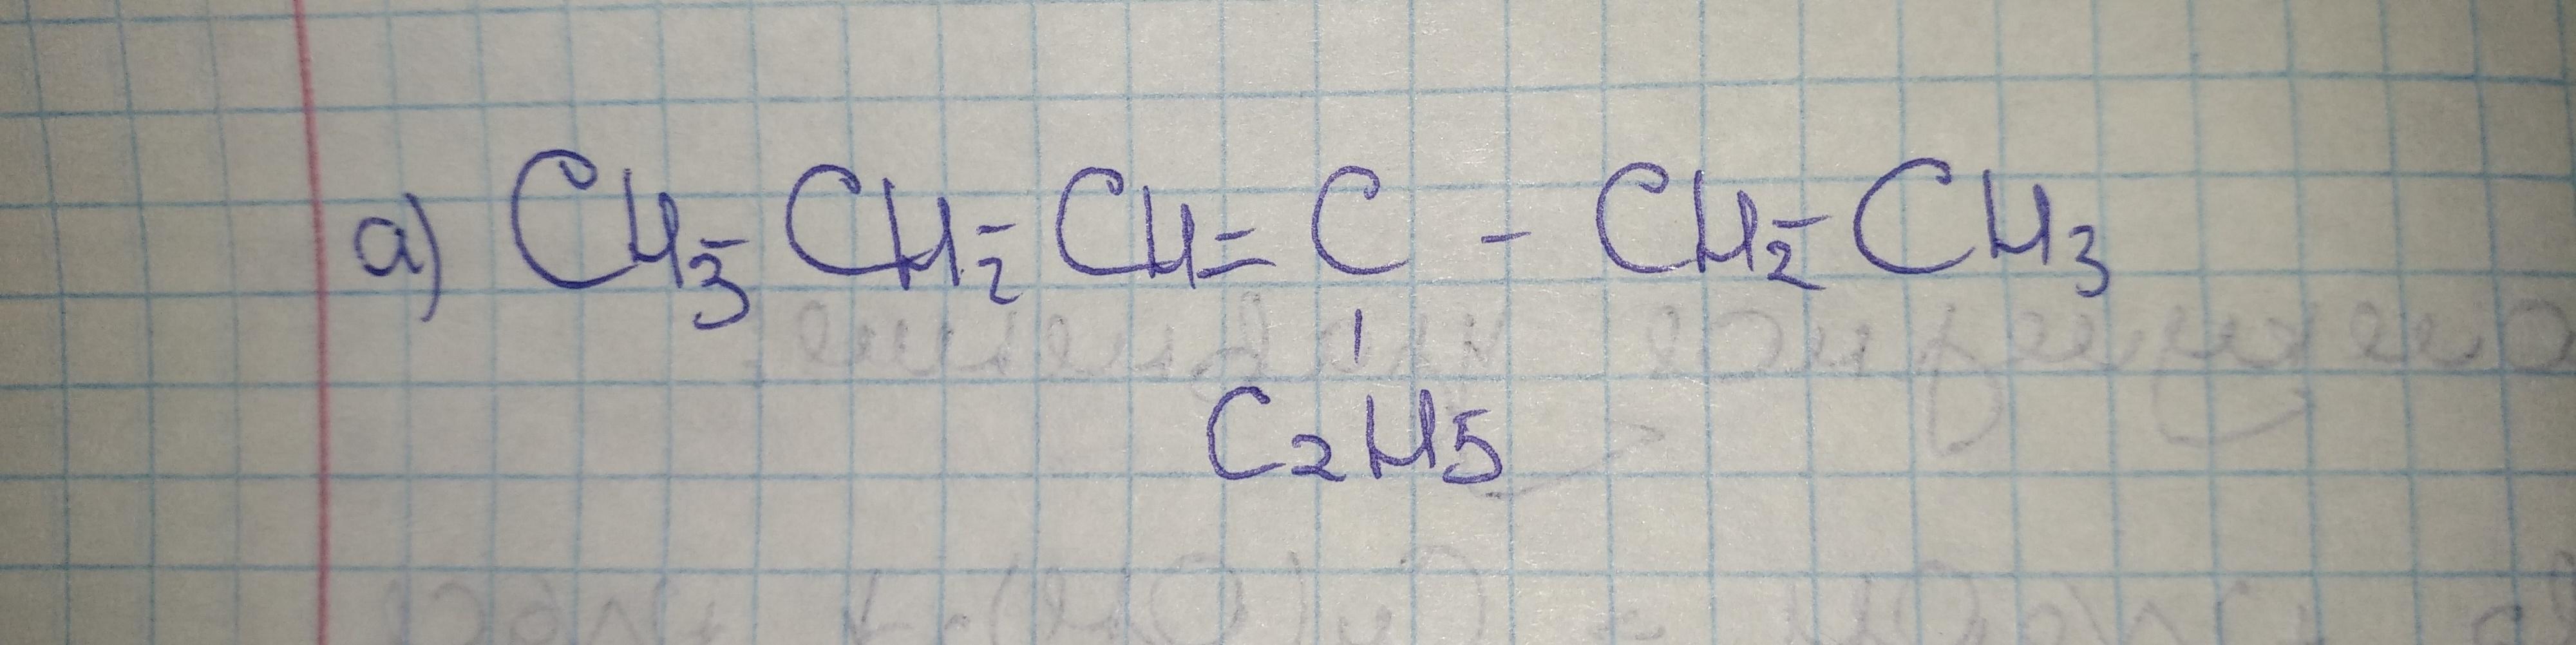 а) CH3-CH2-CH=C-CH2-CH3
|
C2H5